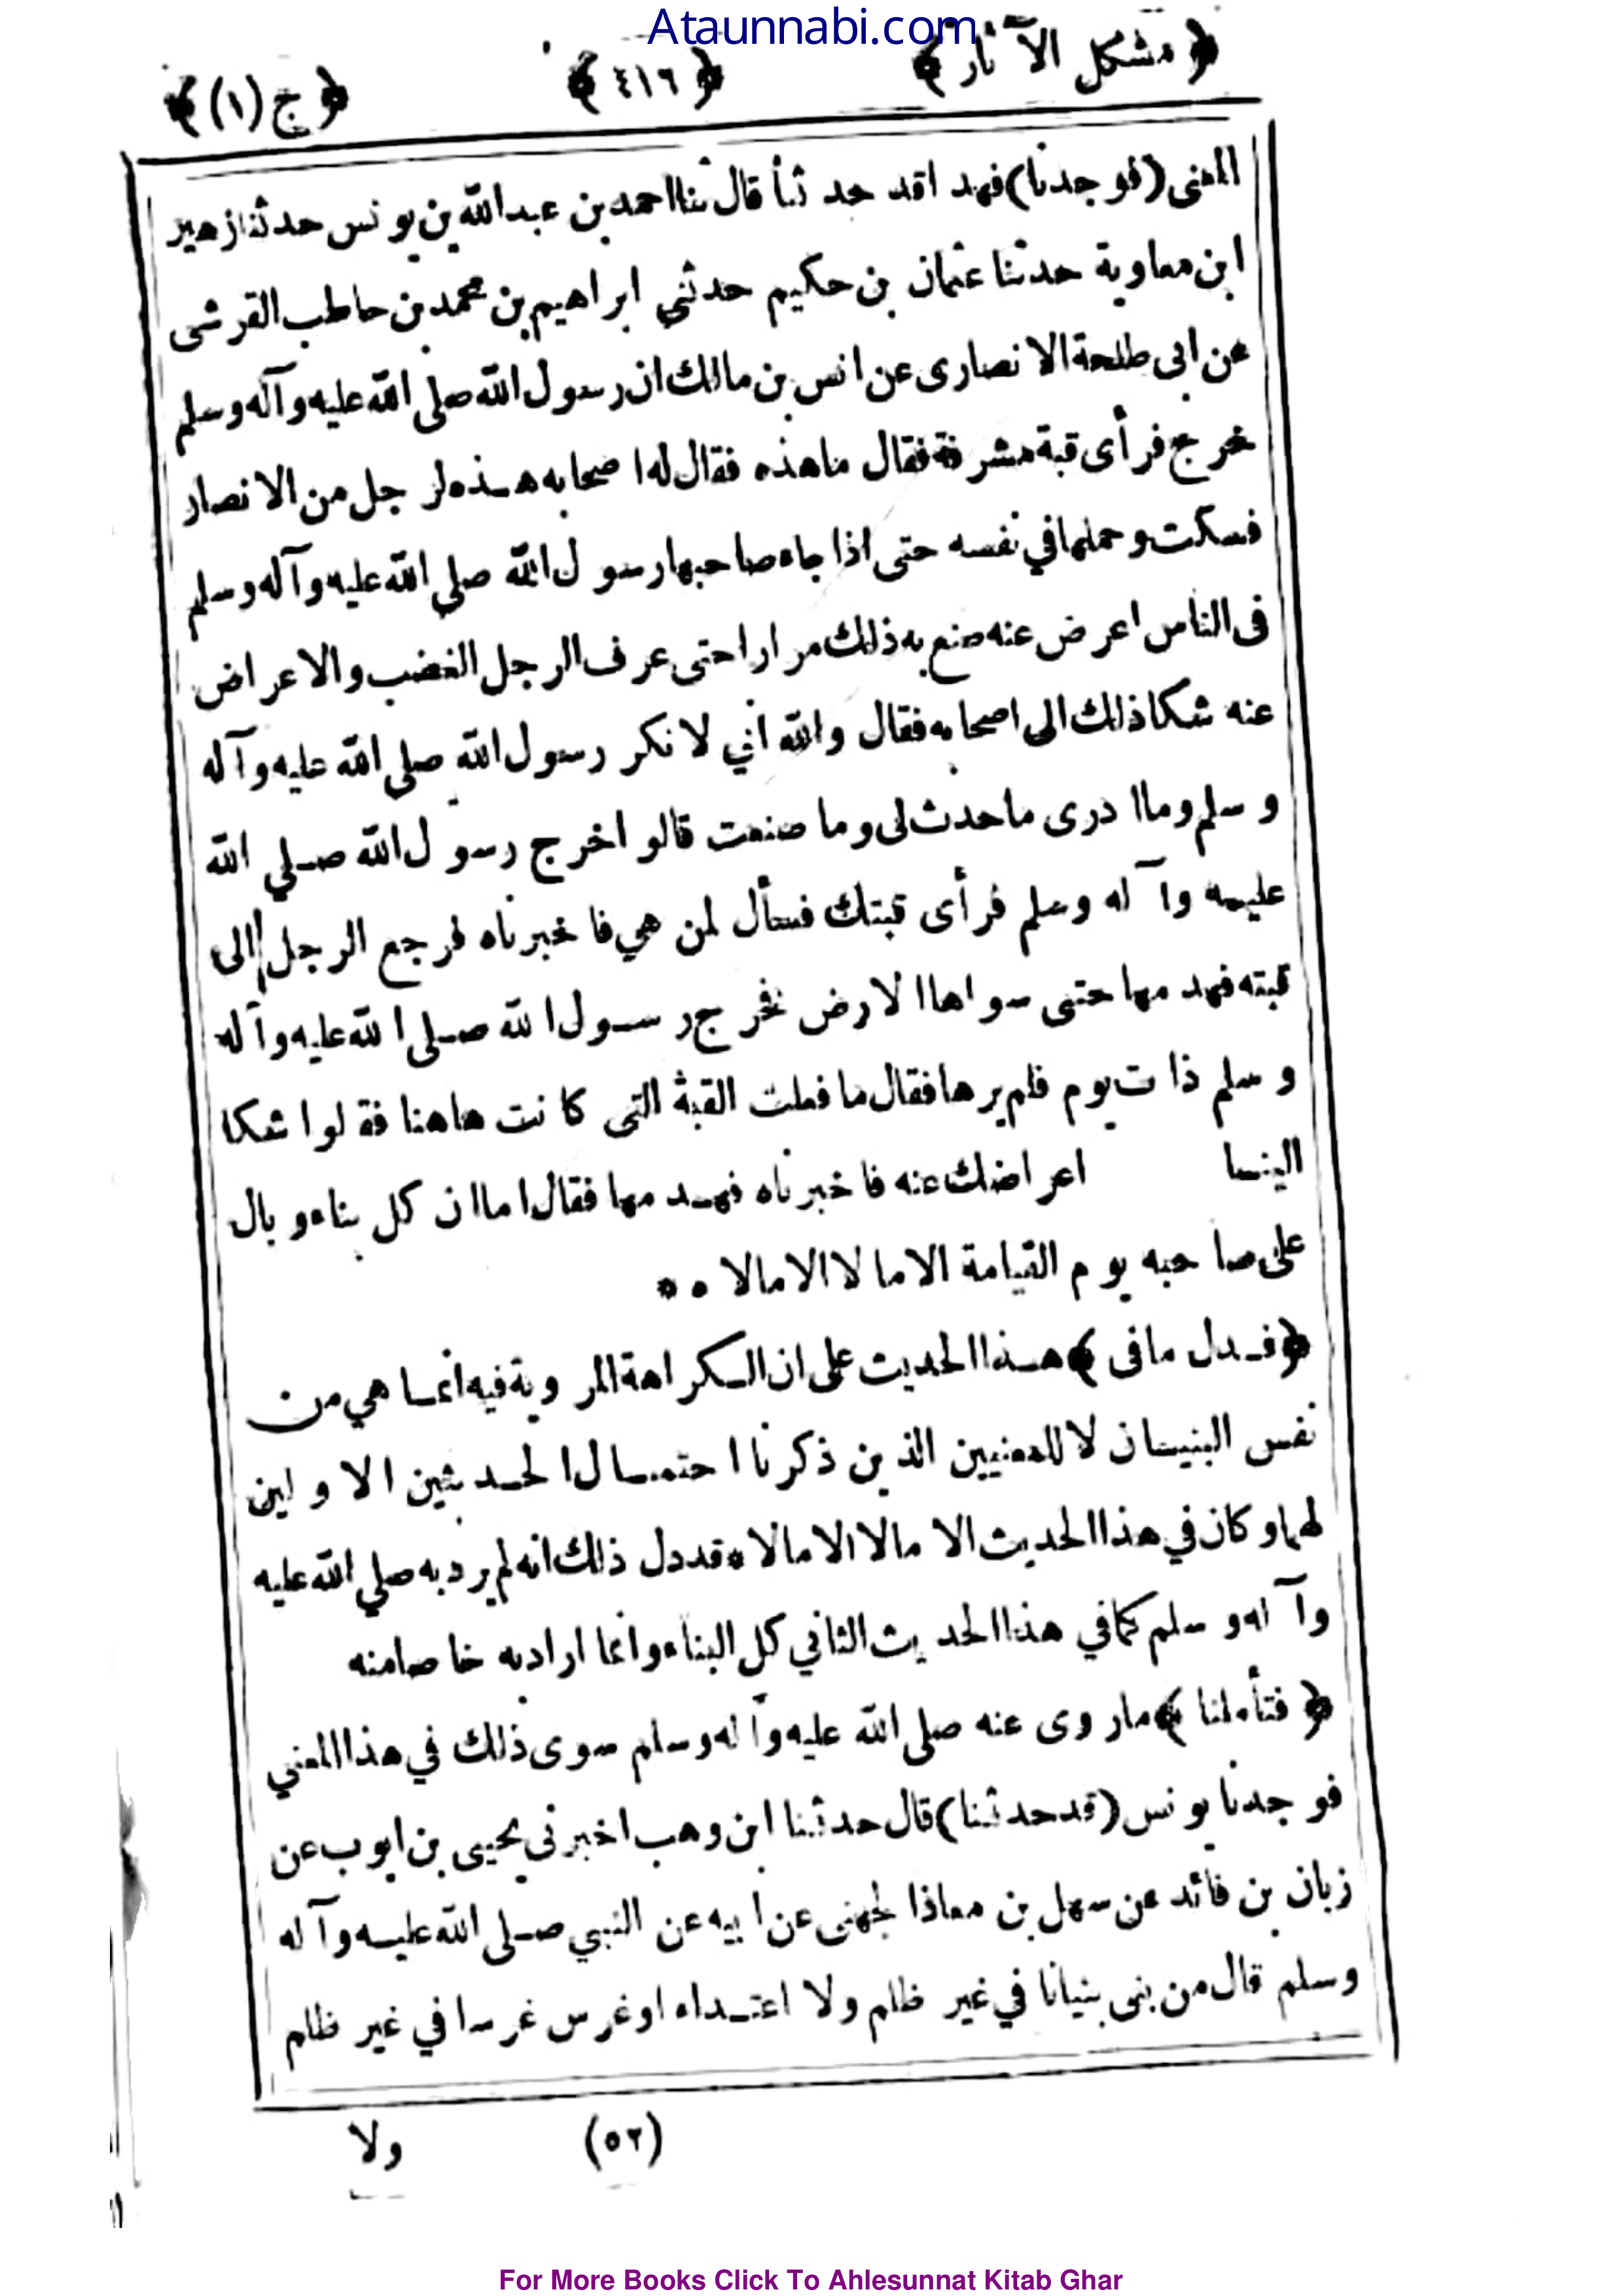 Ataunnabi.com
﴿ مشكل الآثار ﴾ ﴿ ٤١٦ ﴾ ﴿ ج (١) ﴾
المعنى (فوجدنا) فهد اقد حد ثنا قال ثنا احمد بن عبد الله بن يونس حدثنا زهير
ابن معاوية حدثنا عثمان بن حكيم حدثني ابراهيم بن محمد بن حاطب القرشى
عن ابى طلحة الانصارى عن انس بن مالك ان رسول الله صلى الله عليه وآله وسلم
خرج فرأى قبة مشرفة فقال ما هذه فقال له اصحابه هذه لرجل من الانصار
فسكت وحملها في نفسه حتى اذا جاء صاحبها رسول الله صلى الله عليه وآله وسلم
فى الناس اعرض عنه صنع به ذلك مرارا حتى عرف الرجل الغضب والاعراض
عنه شكا ذلك الى اصحابه فقال والله انى لانكر رسول الله صلى الله عليه وآله
وسلم وما ادرى ما حدث لى وما صنعت قالوا خرج رسول الله صلي الله
عليه وآله وسلم فرأى قبتك فسأل لمن هي فاخبرناه فرجع الرجل الى
قبته فهدمها حتى سواها الارض فخرج رسول الله صلى الله عليه وآله
وسلم ذات يوم فلم يرها فقال ما فعلت القبة التى كانت هاهنا فقالوا شكا
الينا اعراضك عنه فاخبرناه فهدمها فقال اما ان كل بناء وبال
على صاحبه يوم القيامة الا مالا الا مالا **
﴿ فدل مافى ﴾ هذا الحديث على ان الكراهة المروية فيه انما هي من
نفس البنيان لا للمعنيين الذين ذكرنا احتمال الحديثين الاولين
لهما وكان في هذا الحديث الا مالا الا مالا * قد دل ذلك انه لم يرد به صلي الله عليه
وآله وسلم كما في هذا الحديث الثاني كل البناء وانما اراد به خاصا منه
﴿ فتأملنا ﴾ ماروى عنه صلى الله عليه وآله وسلم سوى ذلك في هذا المعني
فوجدنا يونس (قد حدثنا) قال حدثنا ابن وهب اخبرني يحيى بن ايوب عن
زبان بن فائد عن سهل بن معاذ الجهنى عن ابيه عن النبي صلى الله عليه وآله
وسلم قال من بنى بنيانا في غير ظلم ولا اعتداء او غرس غرسا في غير ظلم
(٥٢) ولا
For More Books Click To Ahlesunnat Kitab Ghar